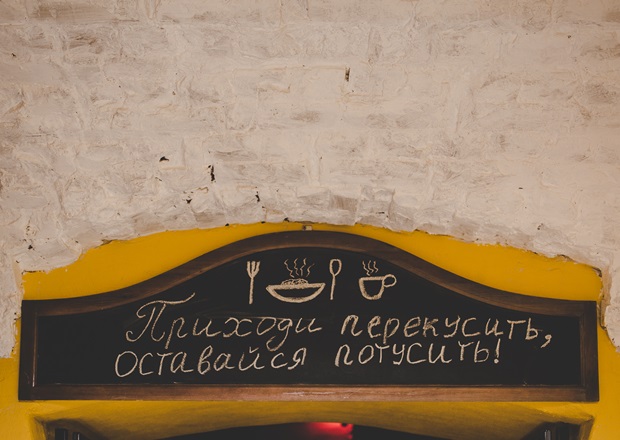 Приходи перекусить,
оставайся потусить!